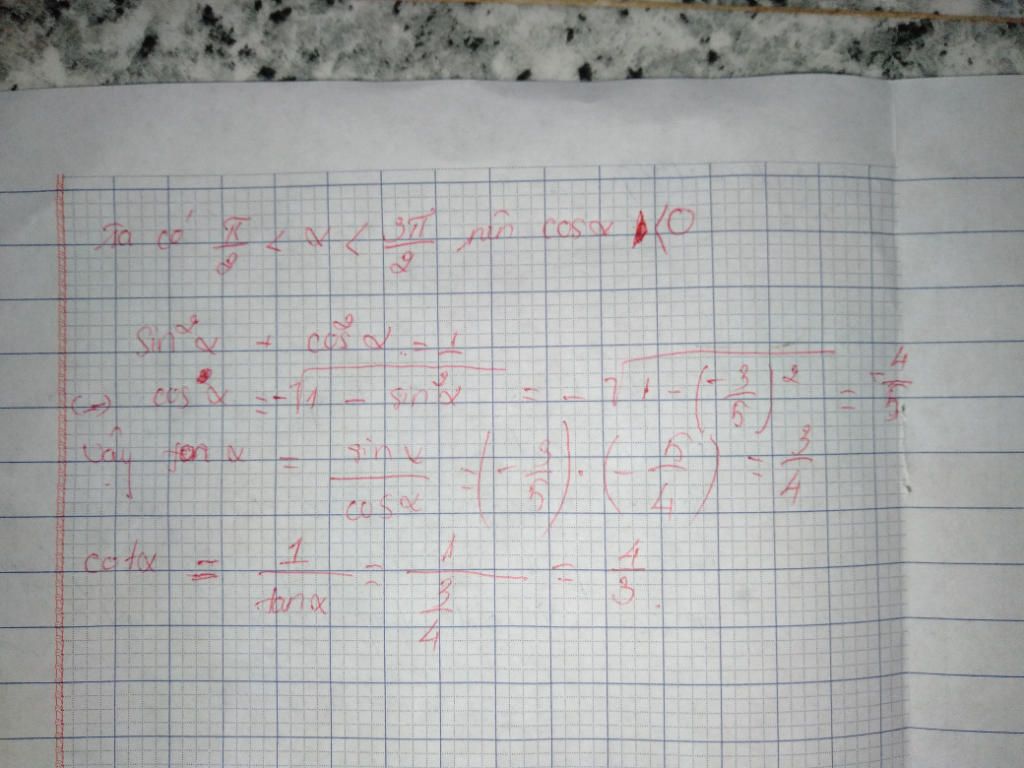 Ta có π/2 < α < 3π/2 nên cosα < 0
sin²α + cos²α = 1
(→) cosα = -√(1 - sin²α) = -√(1 - (-3/5)²) = -4/5
Vậy tanα = sinα/cosα = (-3/5)·(-5/4) = 3/4
cotα = 1/tanα = 1/(3/4) = 4/3.